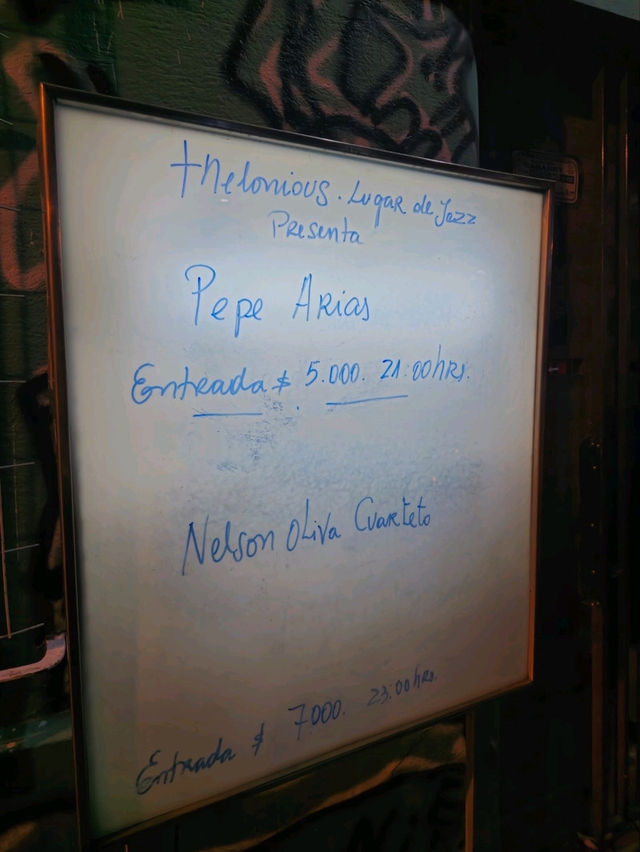 Thelonious. Lugar de Jazz
Presenta
Pepe Arias
Entrada $ 5.000. 21:00 hrs.
Nelson Oliva Cuarteto
Entrada $ 7.000. 23.00 hrs.